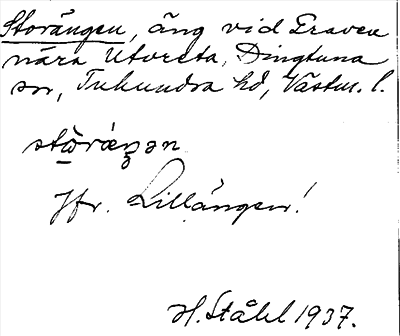 Storängen, äng vid Fraven
nära Utvreta, Dingtuna
sn, Tuhundra hd, Västm. l.
stòrǽŋən
Jfr. Lillängen!
H. Ståhl 1937.